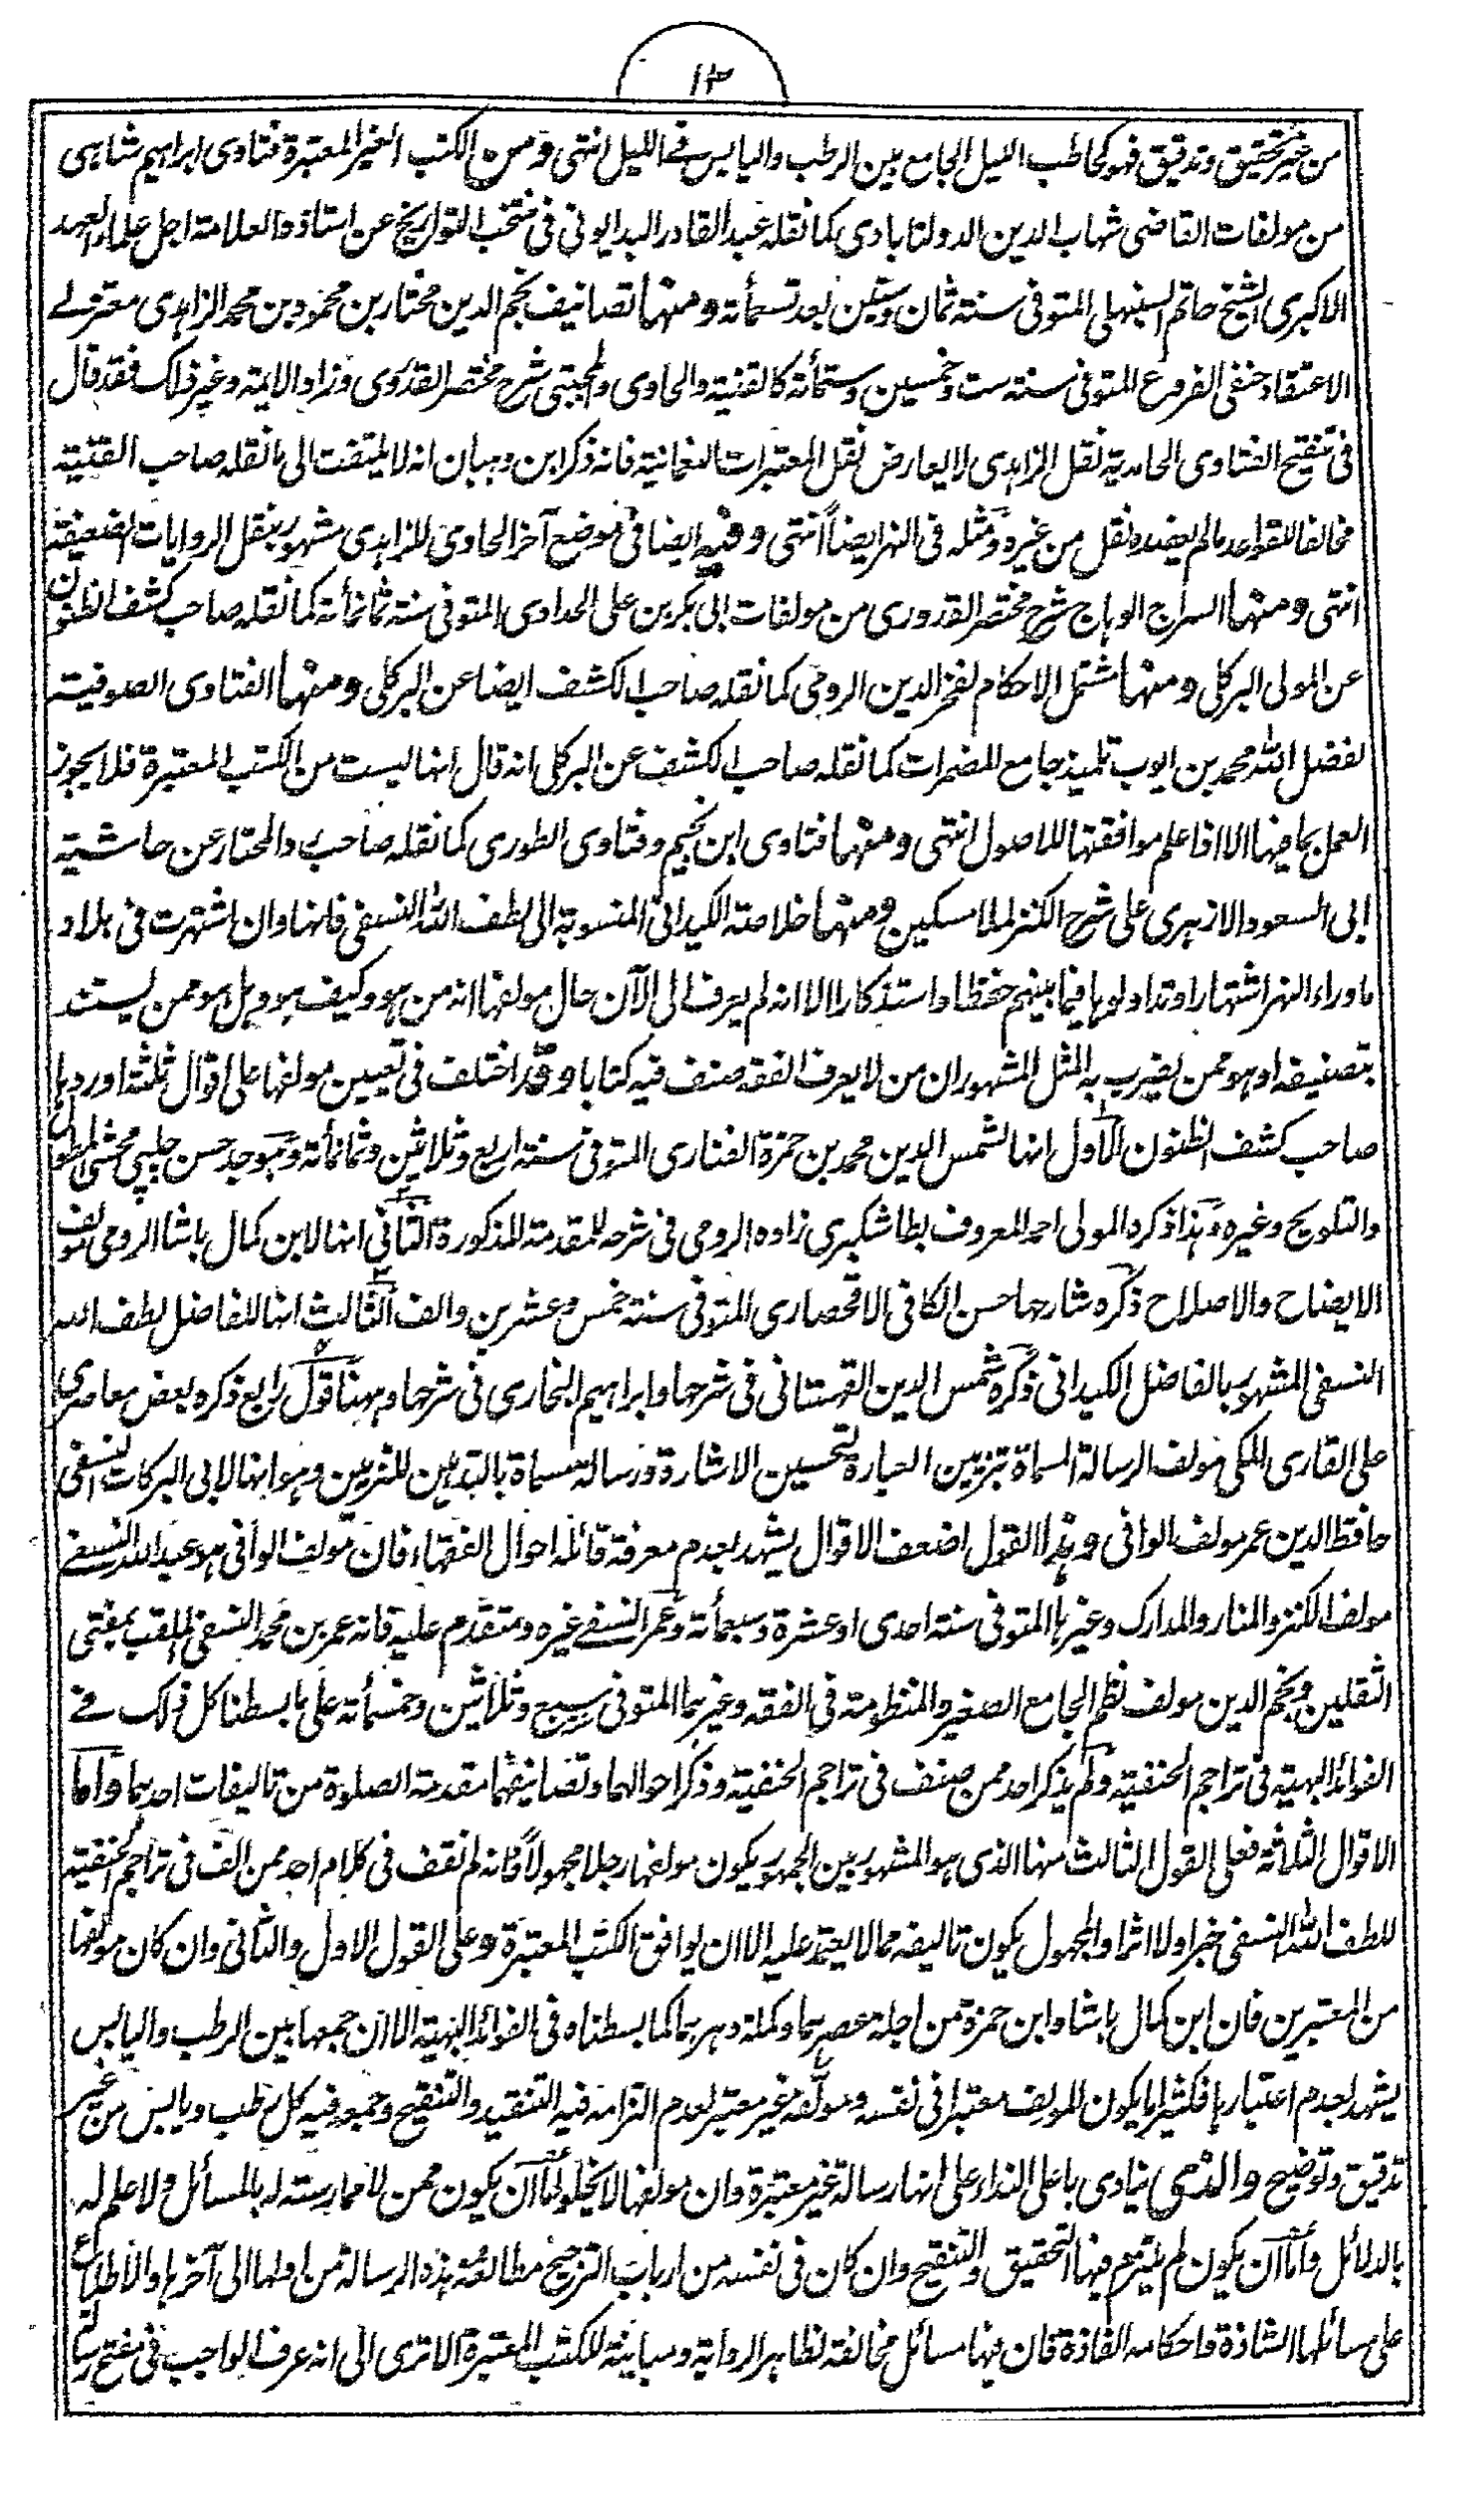 ١٢
من غير تحقيق وتدقيق فهو كحاطب الليل الجامع بين الرطب واليابس فى الليل انتهى ومن الكتب الغير المعتبرة فتاوى ابراهيم شاهى
من مولفات القاضى شهاب الدين الدولتابادى كما نقله عبد القادر البدايونى فى منتخب التواريخ عن استاذه العلامة اجل علماء العهد
الاكبرى الشيخ حاتم السنبهلى المتوفى سنة ثمان وستين بعد تسعمأته ومنها تصانيف نجم الدين مختار بن محمود بن محمد الزاهدى معتزلى
الاعتقاد حنفى الفروع المتوفى سنة ست وخمسين وستمأته كالقنية والحاوى والمجتبى شرح مختصر القدورى وزاد الايمة وغير ذلك فقد قال
فى تنقيح الفتاوى الحامدية نقل الزاهدى لا يعارض نقل المعتبرات النعمانية فانه ذكر ابن وهبان انه لا يلتفت الى ما نقله صاحب القنية
مخالفا للقواعد مالم يعضده نقل من غيره ومثله فى النهر ايضاً انتهى وفيه ايضا فى موضع آخر الحاوى للزاهدى مشهور بنقل الروايات الضعيفة
انتهى ومنها السراج الوهاج شرح مختصر القدورى من مولفات ابى بكر بن على الحدادى المتوفى سنة ثمانمأته كما نقله صاحب كشف الظنون
عن المولى البركلى ومنها مشتمل الاحكام لفخر الدين الرومى كما نقله صاحب الكشف ايضا عن البركلى ومنها الفتاوى الصوفية
لفضل الله محمد بن ايوب تلميذ جامع المضمرات كما نقله صاحب الكشف عن البركلى انه قال انها ليست من الكتب المعتبرة فلا يجوز
العمل بما فيها الا اذا علم موافقتها للاصول انتهى ومنها فتاوى ابن نجيم وفتاوى الطورى كما نقله صاحب رد المحتار عن حاشية
ابى السعود الازهرى على شرح الكنز لملا مسكين ومنها خلاصة الكيدانى المنسوبة الى لطف الله النسفى فانها وان اشتهرت فى بلاد
ماوراء النهر اشتهارا وتداولوها فيما بينهم حفظا واستذكارا الا انه لم يعرف الى الآن حال مولفها انه من هو وكيف هو وهل هو ممن يستند
بتصنيفه او هو ممن يضرب به المثل المشهور ان من لا يعرف الفقه صنف فيه كتابا وقد اختلف فى تعيين مولفها على اقوال ثلثة اوردها
صاحب كشف الظنون الاول انها لشمس الدين محمد بن حمزة الفنارى المتوفى سنة اربع وثلاثين وثمانمأته وهو جد حسن چلپى محشى المطول
والتلويح وغيره وهذا ذكره المولى احمد المعروف بطاشكبرى زاده الرومى فى شرحه للمقدمة المذكورة الثانى انها لابن كمال باشا الرومى مولف
الايضاح والاصلاح ذكره شارحها حسن الكافى الاقحصارى المتوفى سنة خمس وعشرين والف الثالث انها للفاضل لطف الله
النسفى المشهور بالفاضل الكيدانى ذكره شمس الدين القهستانى فى شرحها وابراهيم البخارى فى شرحها وههنا قول رابع ذكره بعض معاصرى
على القارى المكى مولف الرسالة المسماة بتزيين العبارة لتحسين الاشارة ورسالة مسماة بالتدهين للتزيين وهو انها لابى البركات النسفى
حافظ الدين عمر مولف الوافى وهذا القول اضعف الاقوال يشهد بعدم معرفة قائله احوال الفقهاء فان مولف الوافى هو عبد الله النسفى
مولف الكنز والمنار والمدارك وغيرها المتوفى سنة احدى او عشرة وسبعمأته وعمر النسفى غيره ومتقدم عليه فانه عمر بن محمد النسفى الملقب بمفتى
الثقلين ونجم الدين مولف نظم الجامع الصغير والمنظومة فى الفقه وغيرهما المتوفى سبع وثلاثين وخمسمأته على ما بسطنا كل ذلك فى
الفوائد البهية فى تراجم الحنفية ولم يذكر احد ممن صنف فى تراجم الحنفية وذكر احوالهما وتصانيفهما مقدمة الصلوة من تاليفات احدهما واما
الاقوال الثلاثة فعلى القول الثالث منها الذى هو المشهور بين الجمهور يكون مولفها رجلا مجهولاً فانه لم نقف فى كلام احد ممن الف فى تراجم الحنفية
للطف الله النسفى خبرا ولا اثرا والمجهول يكون تاليفه مما لا يعتمد عليه الا ان يوافق الكتب المعتبرة وعلى القول الاول والثانى وان كان مولفها
من المعتبرين فان ابن كمال باشا وابن حمزة من اجلة عصرهما وكملة دهرهما كما بسطناه فى الفوائد البهية الا ان جمعها بين الرطب واليابس
يشهد بعدم اعتبارها فكثيرا ما يكون المولف معتبرا فى نفسه ومولَّفه غير معتبر لعدم التزامه فيه التنقيد والتنقيح وجمعه فيه كل رطب ويابس من غير
تدقيق وتوضيح والذى ينادى باعلى النداء على انها رسالة غير معتبرة وان مولفها لا يخلو اما ان يكون ممن لا ممارسة له بالمسائل ولا علم له
بالدلائل واما ان يكون لم يلتزم فيها التحقيق والتنقيح وان كان فى نفسه من ارباب الترجيح مطالعة هذه الرسالة من اولها الى آخرها والاطلاع
على مسائلها الشاذة واحكامه الفاذة فان فيها مسائل مخالفة لظاهر الرواية ومباينة للكتب المعتبرة الا ترى الى انه عرف الواجب فى مفتح رسالته